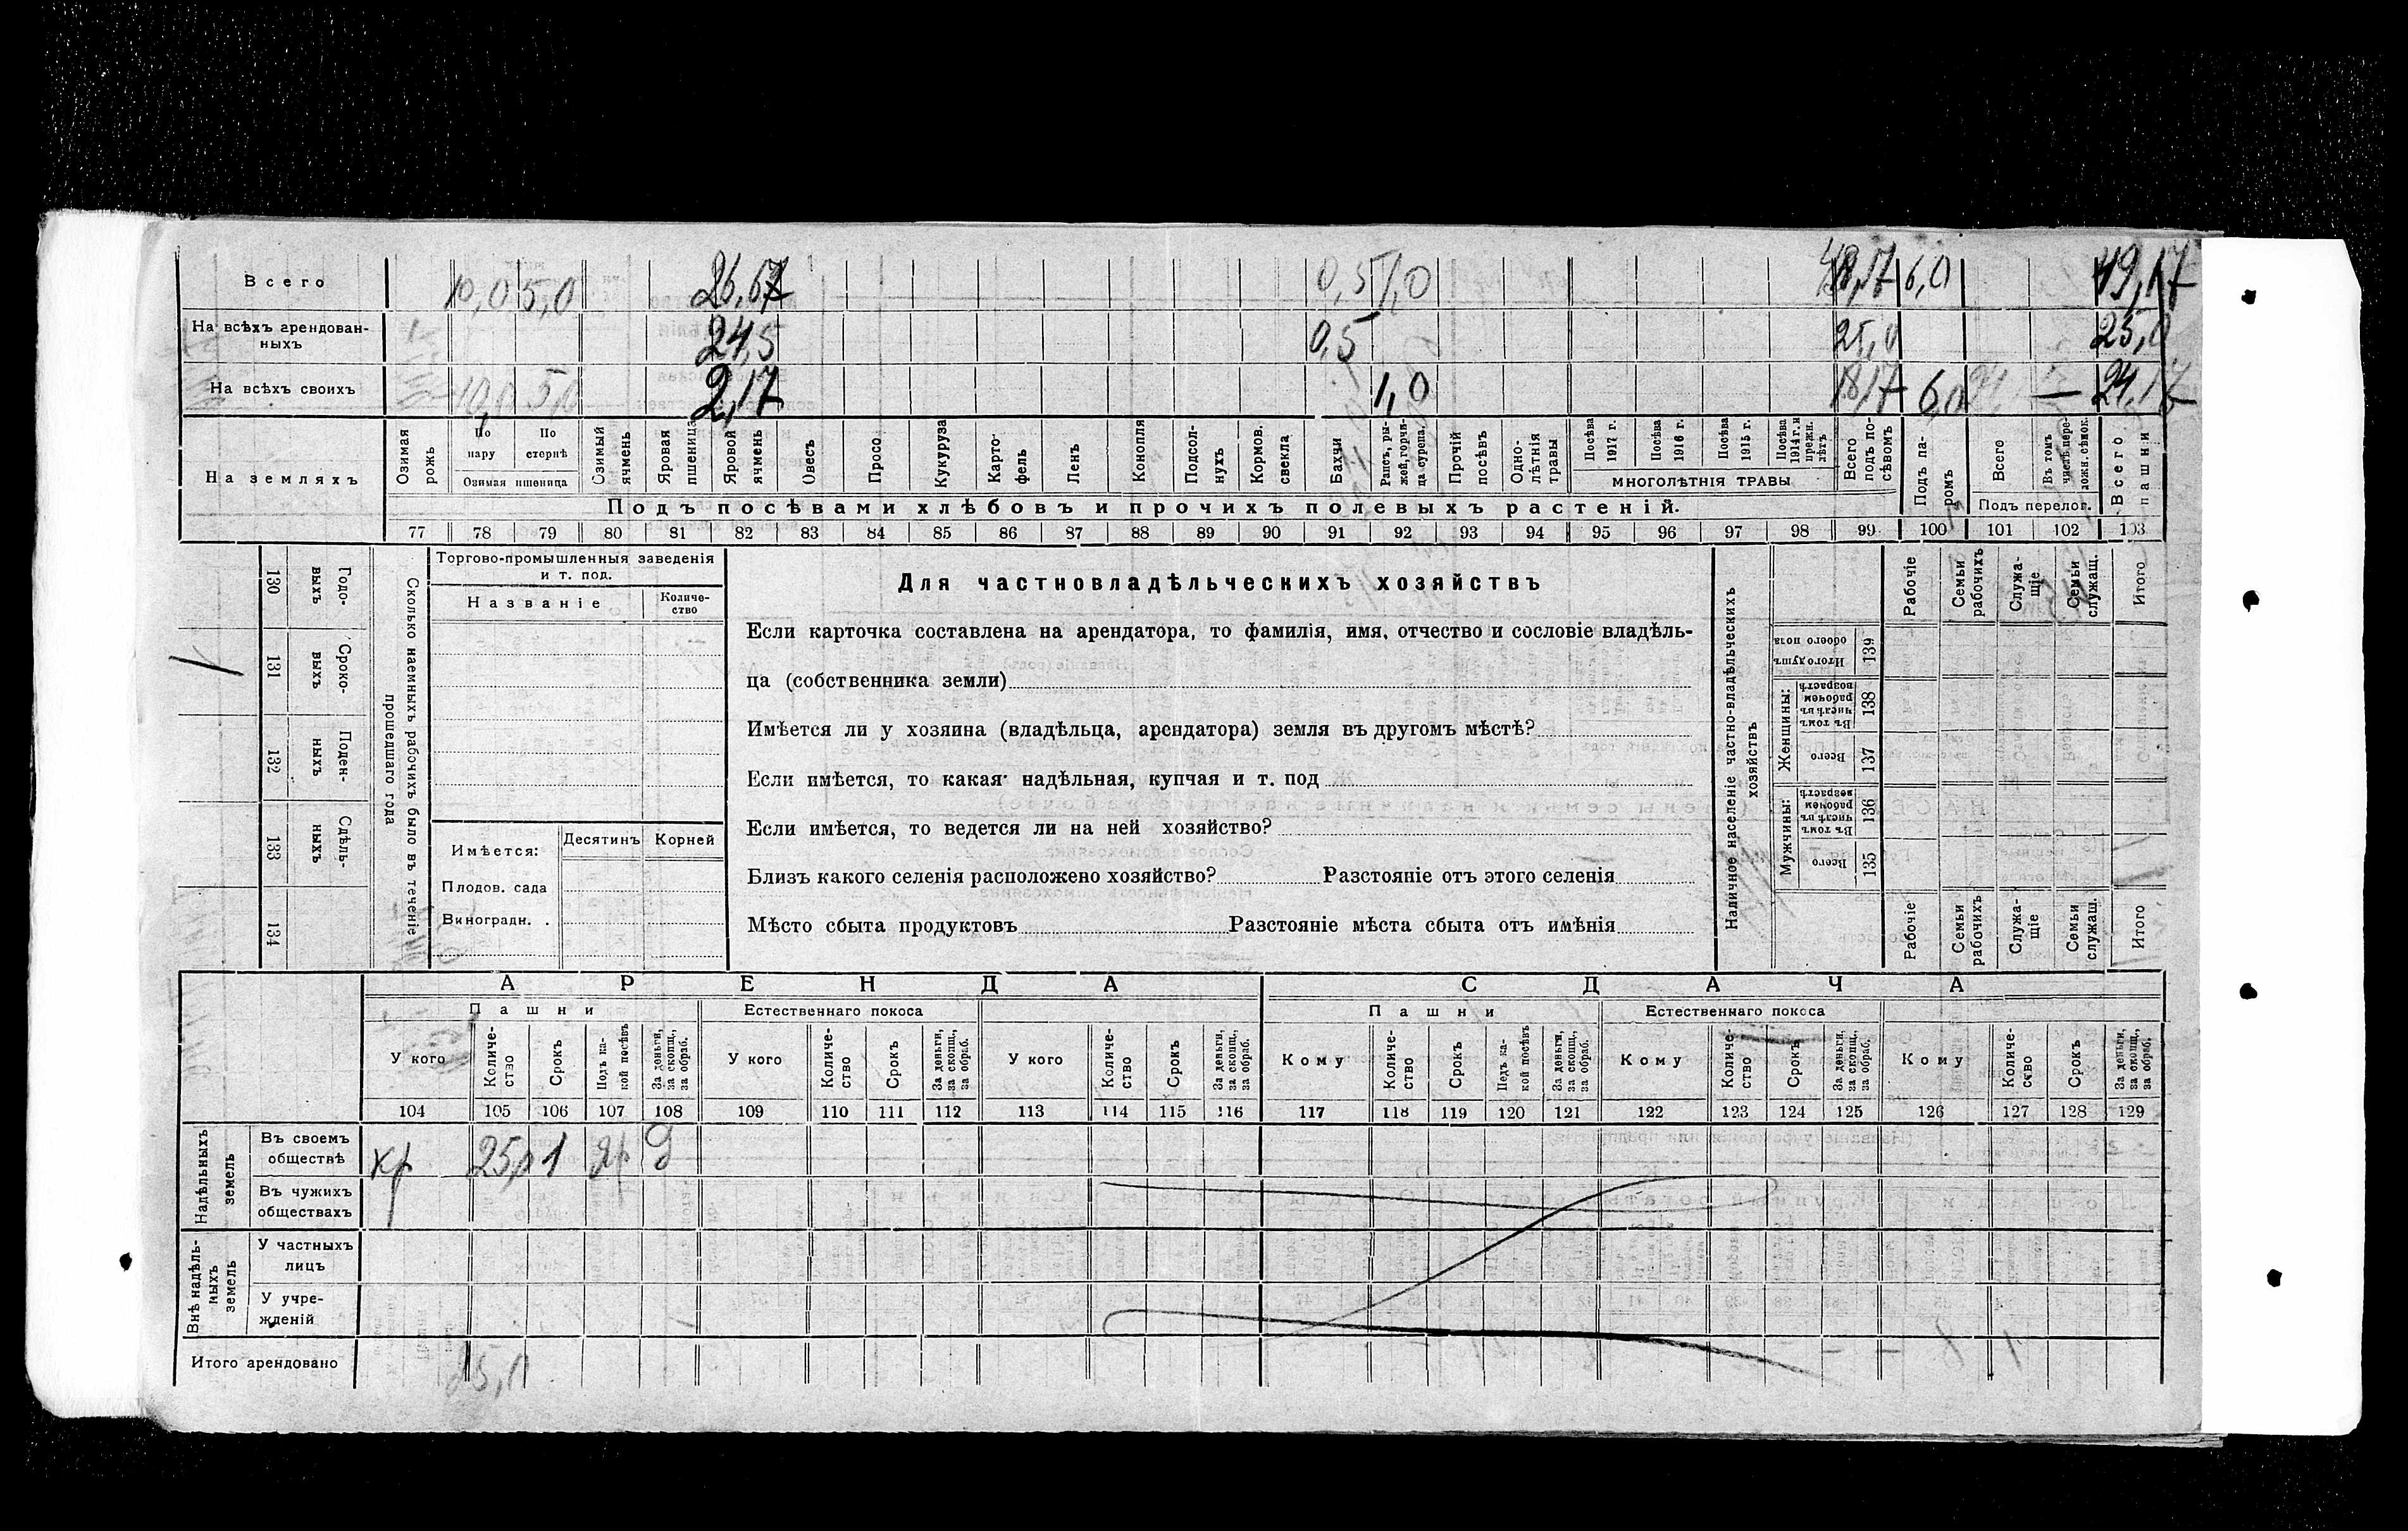 Всего 10,0 5,0 26,67 0,5 1,0 43,17 6,0 49,17
На всѣхъ арендован-
ныхъ 24,5 0,5 25,0 25,0
На всѣхъ своихъ 10,0 5,0 2,17 1,0 18,17 6,0 — 24,17
На земляхъ
Озимая рожь
По пару
По стернѣ
Озимая пшеница
Озимый ячмень
Яровая пшеница
Яровой ячмень
Овесъ
Просо
Кукуруза
Карто-
фель
Ленъ
Конопля
Подсол-
нухъ
Кормов. свекла
Бахчи
Рапсъ, ры-
жей, горчи-
ца сурепа.
Прочій посѣвъ
Одно-
лѣтнія травы
Посѣва 1917 г.
Посѣва 1916 г.
Посѣва 1915 г.
Посѣва 1914 г. и прежн. лѣтъ
МНОГОЛѢТНІЯ ТРАВЫ
Всего подъ по-
сѣвомъ
Подъ па-
ромъ
Всего
Въ томъ числѣ, пере-
ложн. сѣнок.
Подъ перелог.
Всего пашни
Подъ посѣвами хлѣбовъ и прочихъ полевыхъ растеній.
77 78 79 80 81 82 83 84 85 86 87 88 89 90 91 92 93 94 95 96 97 98 99 100 101 102 103
Сколько наемныхъ рабочихъ было въ теченіе
прошедшаго года
Годо-
выхъ
130
Сроко-
выхъ
131
1
Поден-
ныхъ
132
Сдѣль-
ныхъ
133
134
Торгово-промышленныя заведенія
и т. под.
Названіе
Количе-
ство
Имѣется:
Десятинъ
Корней
Плодов. сада
Виноградн. .
Для частновладѣльческихъ хозяйствъ
Если карточка составлена на арендатора, то фамилія, имя, отчество и сословіе владѣль-
ца (собственника земли)
Имѣется ли у хозяина (владѣльца, арендатора) земля въ другомъ мѣстѣ?
Если имѣется, то какая надѣльная, купчая и т. под
Если имѣется, то ведется ли на ней хозяйство?
Близъ какого селенія расположено хозяйство? Разстояніе отъ этого селенія
Мѣсто сбыта продуктовъ Разстояніе мѣста сбыта отъ имѣнія
Наличное населеніе частно-владѣльческихъ
хозяйствъ
Рабочіе
Семьи рабочихъ
Служа-
щіе
Семьи служащ.
Итого
Итого душъ обоего пола
139
Женщины:
Въ томъ числѣ въ рабочемъ возрастѣ
138
Всего
137
Мужчины:
Въ томъ числѣ въ рабочемъ возрастѣ
136
Всего
135
Рабочіе
Семьи рабочихъ
Служа-
щіе
Семьи служащ.
Итого
АРЕНДА СДАЧА
Пашни Естественнаго покоса Пашни Естественнаго покоса
У кого
Количе-
ство
Срокъ
Подъ ка-
кой посѣвъ
За деньги, за скопщ., за обраб.
У кого
Количе-
ство
Срокъ
За деньги, за скопщ., за обраб.
У кого
Количе-
ство
Срокъ
За деньги, за скопщ., за обраб.
Кому
Количе-
ство
Срокъ
Подъ ка-
кой посѣвъ
За деньги, за скопщ., за обраб.
Кому
Количе-
ство
Срокъ
За деньги, за скопщ., за обраб.
Кому
Количе-
ство
Срокъ
За деньги, за скопщ., за обраб.
104 105 106 107 108 109 110 111 112 113 114 115 116 117 118 119 120 121 122 123 124 125 126 127 128 129
Надѣльныхъ
земель
Въ своемъ
обществѣ
кр 25,0 1 яр д
Въ чужихъ
обществахъ
Внѣ надѣль-
ныхъ
земель
У частныхъ
лицъ
У учре-
жденій
Итого арендовано 25,0